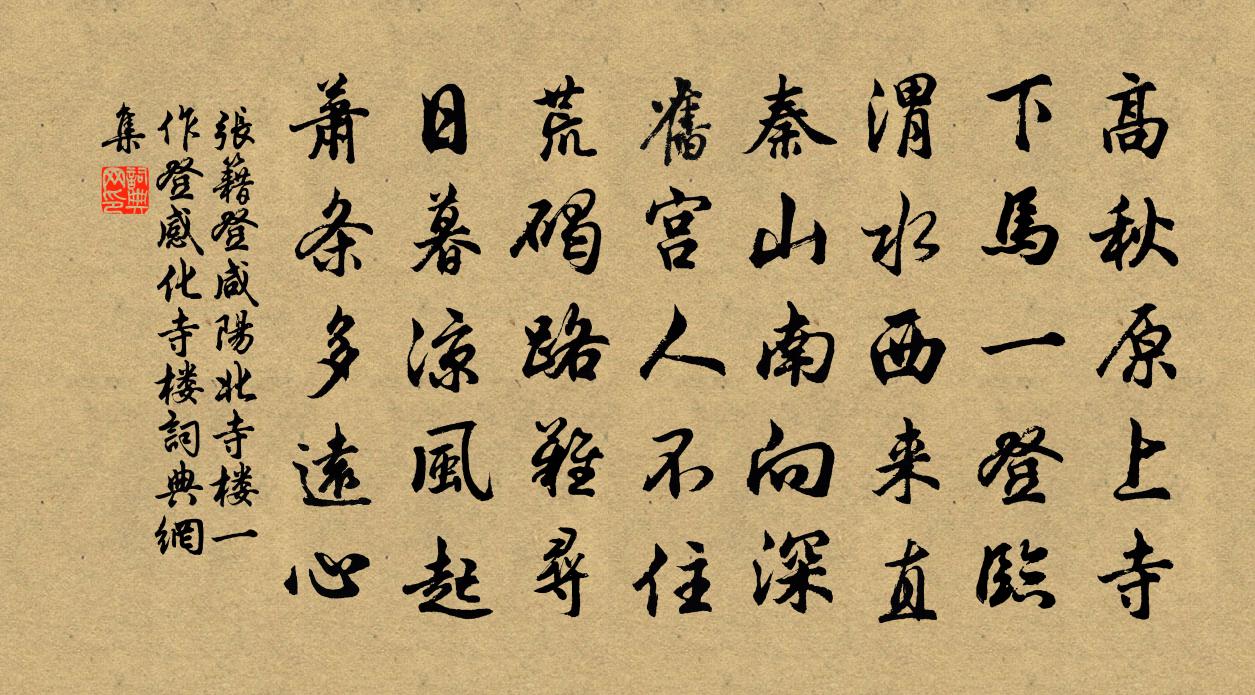 高秋原上寺
下馬一登臨
渭水西来直
秦山南向深
舊宮人不住
荒碣路難尋
日暮涼風起
蕭条多遠心
張籍登咸陽北寺楼一
作登感化寺楼詞典網
集
詞典
网印